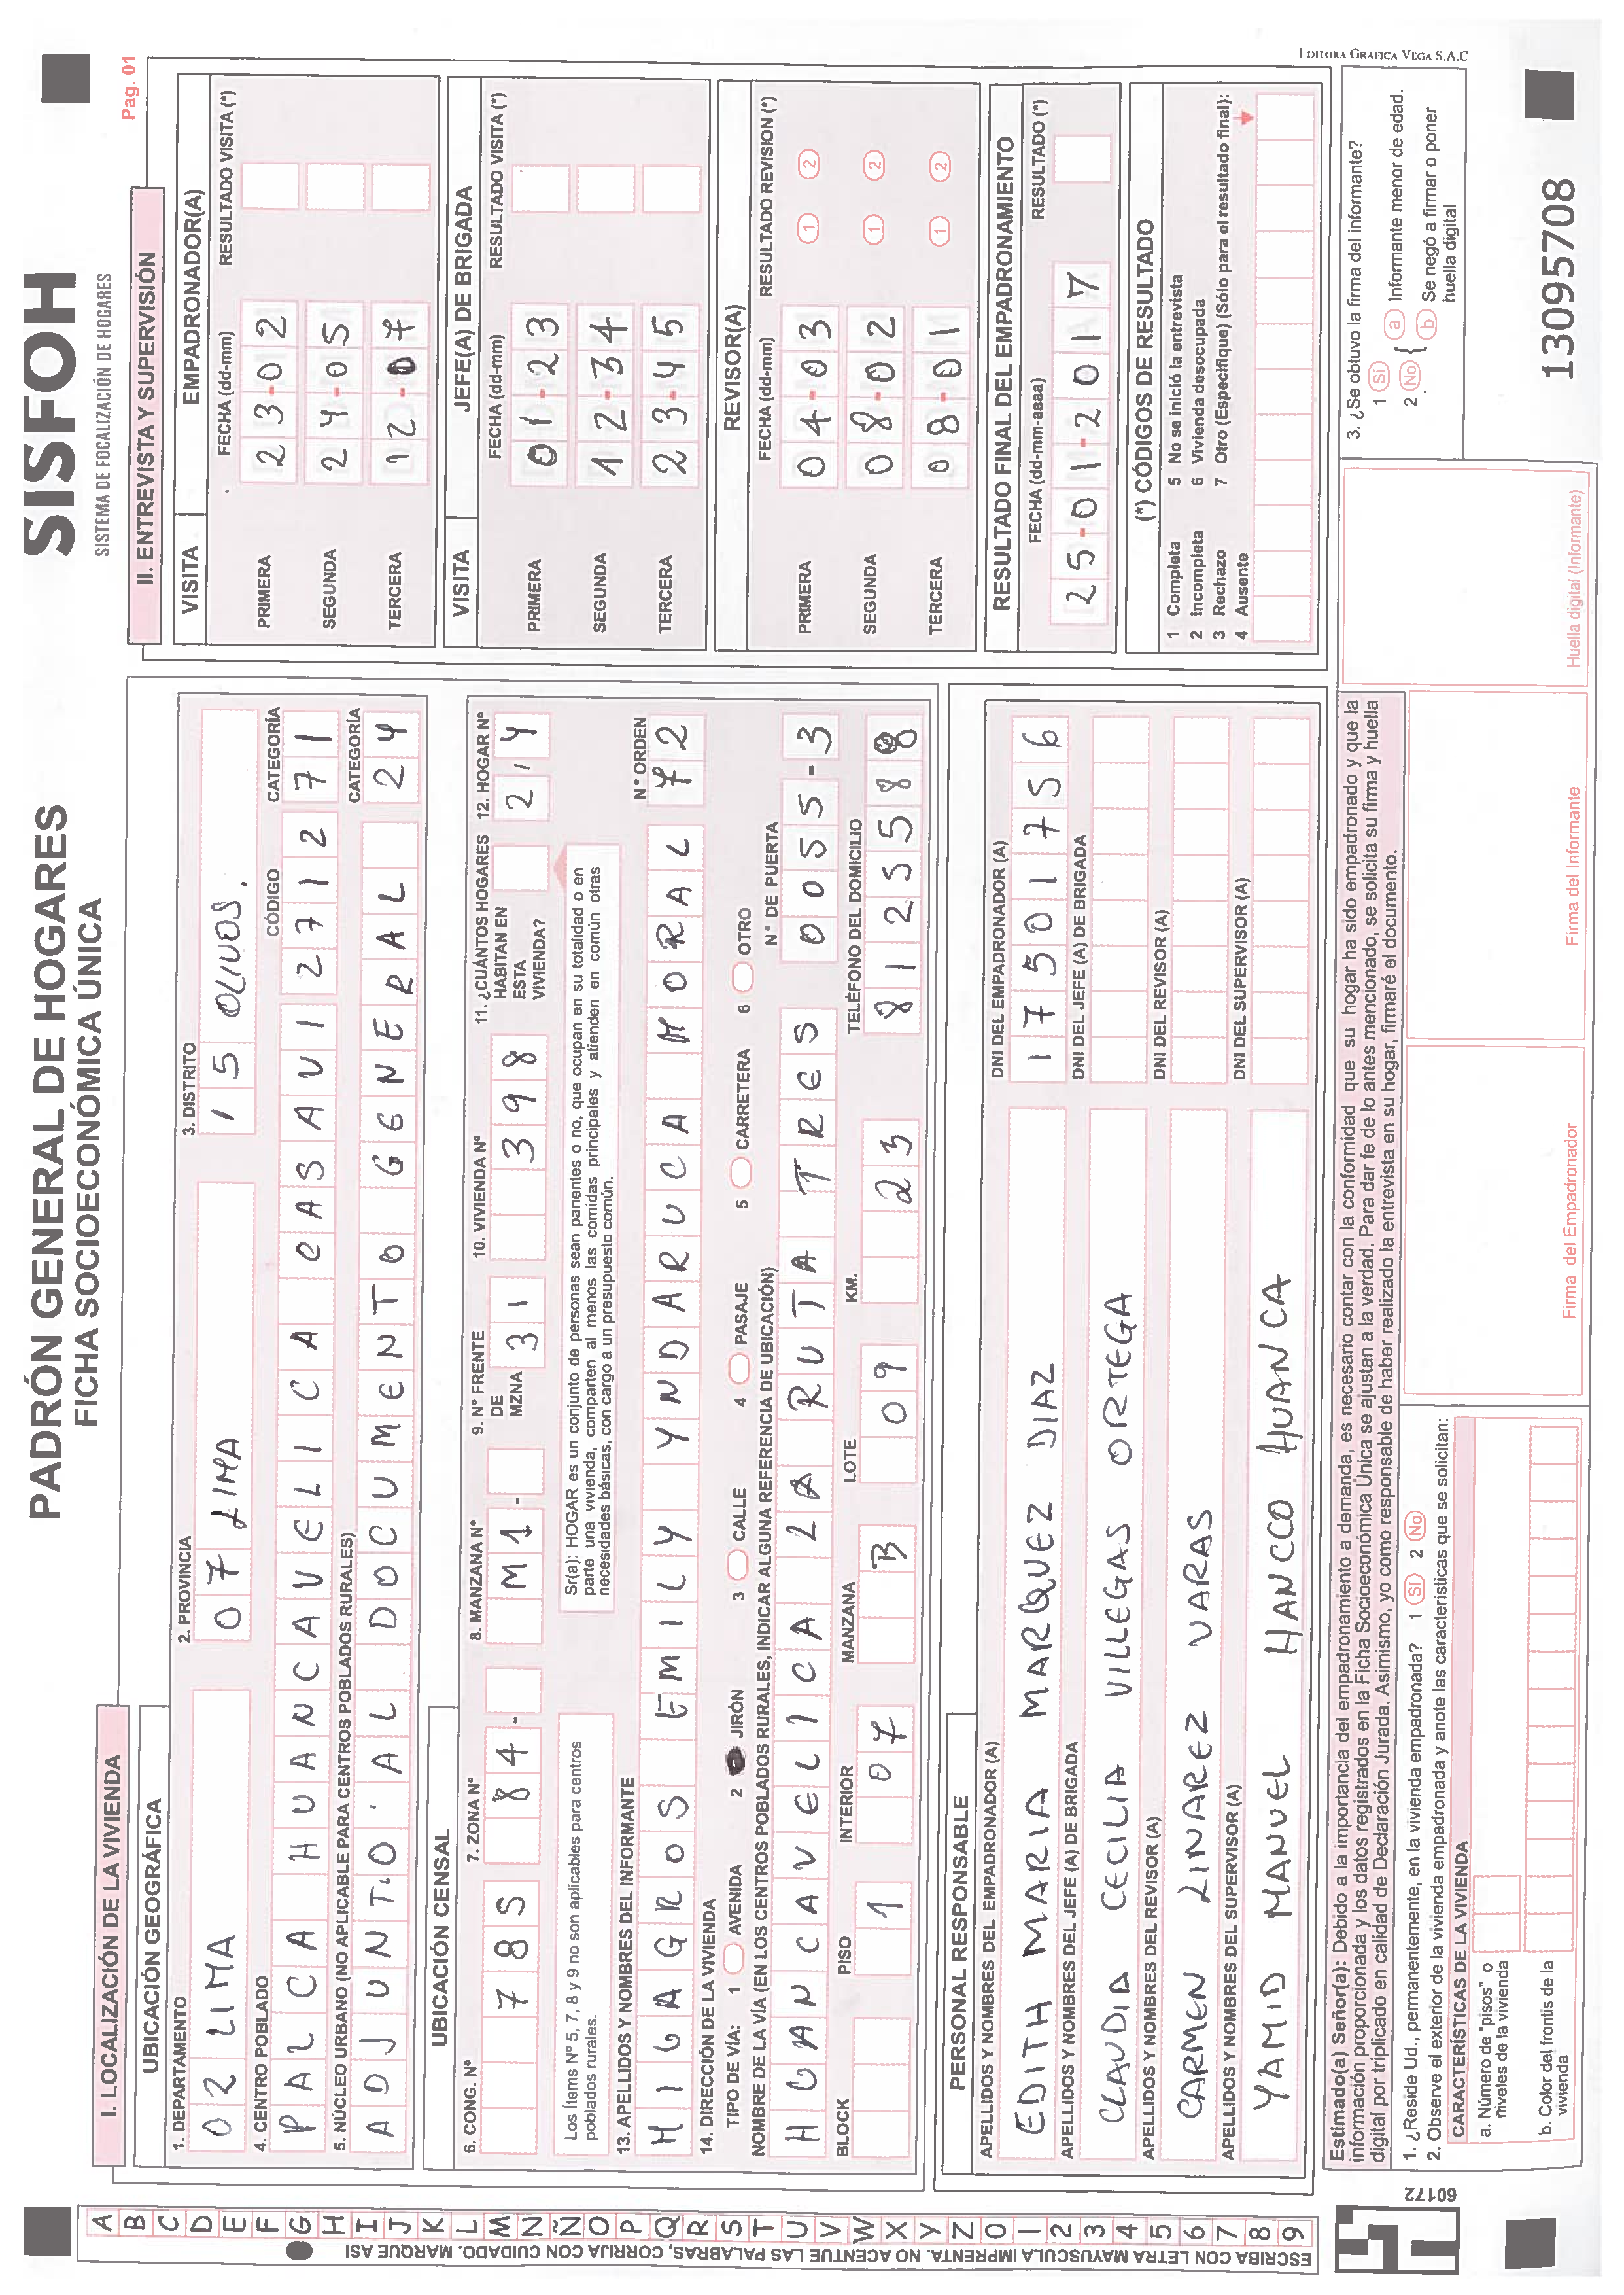 PADRÓN GENERAL DE HOGARES
FICHA SOCIOECONÓMICA ÚNICA
SISFOH
SISTEMA DE FOCALIZACIÓN DE HOGARES
Pag. 01
I. LOCALIZACIÓN DE LA VIVIENDA
UBICACIÓN GEOGRÁFICA
1. DEPARTAMENTO 2. PROVINCIA 3. DISTRITO
02 LIMA 07 LIMA 15 OLIVOS.
4. CENTRO POBLADO CÓDIGO CATEGORÍA
PALCA HUANCAVELICA CASAVI 2712 71
5. NÚCLEO URBANO (NO APLICABLE PARA CENTROS POBLADOS RURALES) CATEGORÍA
ADJUNTO. AL DOCUMENTO GENERAL 24
UBICACIÓN CENSAL
6. CONG. Nº 7. ZONA Nº 8. MANZANA Nº 9. Nº FRENTE DE MZNA 10. VIVIENDA Nº 11. ¿CUÁNTOS HOGARES HABITAN EN ESTA VIVIENDA? 12. HOGAR Nº
785 84- M1- 31 398 2,4
Los Ítems Nº 5, 7, 8 y 9 no son aplicables para centros
poblados rurales.
Sr(a): HOGAR es un conjunto de personas sean parientes o no, que ocupan en su totalidad o en
parte una vivienda, comparten al menos las comidas principales y atienden en común otras
necesidades básicas, con cargo a un presupuesto común.
13. APELLIDOS Y NOMBRES DEL INFORMANTE N° ORDEN
MILAGROS EMILY YNDARUCA MORAL 72
14. DIRECCIÓN DE LA VIVIENDA
TIPO DE VÍA: 1 AVENIDA 2 JIRÓN 3 CALLE 4 PASAJE 5 CARRETERA 6 OTRO
NOMBRE DE LA VÍA (EN LOS CENTROS POBLADOS RURALES, INDICAR ALGUNA REFERENCIA DE UBICACIÓN) N° DE PUERTA
HUANCAVELICA LA RUTA TRES 0055-3
BLOCK PISO INTERIOR MANZANA LOTE KM. TELÉFONO DEL DOMICILIO
1 07 B 09 23 8125588
PERSONAL RESPONSABLE
APELLIDOS Y NOMBRES DEL EMPADRONADOR (A) DNI DEL EMPADRONADOR (A)
EDITH MARIA MARQUEZ DIAZ 17501756
APELLIDOS Y NOMBRES DEL JEFE (A) DE BRIGADA DNI DEL JEFE (A) DE BRIGADA
CLAUDIA CECILIA VILLEGAS ORTEGA
APELLIDOS Y NOMBRES DEL REVISOR (A) DNI DEL REVISOR (A)
CARMEN LINAREZ VARAS
APELLIDOS Y NOMBRES DEL SUPERVISOR (A) DNI DEL SUPERVISOR (A)
YAMID MANUEL HANCCO HUANCA
II. ENTREVISTA Y SUPERVISIÓN
VISITA EMPADRONADOR(A)
FECHA (dd-mm) RESULTADO VISITA (*)
PRIMERA 23-02
SEGUNDA 24-05
TERCERA 12-07
VISITA JEFE(A) DE BRIGADA
FECHA (dd-mm) RESULTADO VISITA (*)
PRIMERA 01-23
SEGUNDA 12-34
TERCERA 23-45
REVISOR(A)
FECHA (dd-mm) RESULTADO REVISION (*)
PRIMERA 04-03 1 2
SEGUNDA 08-02 1 2
TERCERA 08-01 1 2
RESULTADO FINAL DEL EMPADRONAMIENTO
FECHA (dd-mm-aaaa) RESULTADO (*)
25-01-2017
(*) CÓDIGOS DE RESULTADO
1 Completa 5 No se inició la entrevista
2 Incompleta 6 Vivienda desocupada
3 Rechazo 7 Otro (Especifique) (Sólo para el resultado final):
4 Ausente
Estimado(a) Señor(a): Debido a la importancia del empadronamiento a demanda, es necesario contar con la conformidad que su hogar ha sido empadronado y que la
información proporcionada y los datos registrados en la Ficha Socioeconómica Única se ajustan a la verdad. Para dar fe de lo antes mencionado, se solicita su firma y huella
digital por triplicado en calidad de Declaración Jurada. Asimismo, yo como responsable de haber realizado la entrevista en su hogar, firmaré el documento.
1. ¿Reside Ud., permanentemente, en la vivienda empadronada? 1 Sí 2 No
2. Observe el exterior de la vivienda empadronada y anote las características que se solicitan:
CARACTERÍSTICAS DE LA VIVIENDA
a. Número de "pisos" o
niveles de la vivienda
b. Color del frontis de la
vivienda
Firma del Empadronador
Firma del Informante
Huella digital (Informante)
3. ¿Se obtuvo la firma del informante?
1 Sí
2 No { a Informante menor de edad.
b Se negó a firmar o poner
huella digital
EDITORA GRAFICA VEGA S.A.C
13095708
60172
A B C D E F G H I J K L M N Ñ O P Q R S T U V W X Y Z 0 1 2 3 4 5 6 7 8 9
ESCRIBA CON LETRA MAYUSCULA IMPRENTA. NO ACENTUE LAS PALABRAS, CORRIJA CON CUIDADO. MARQUE ASI